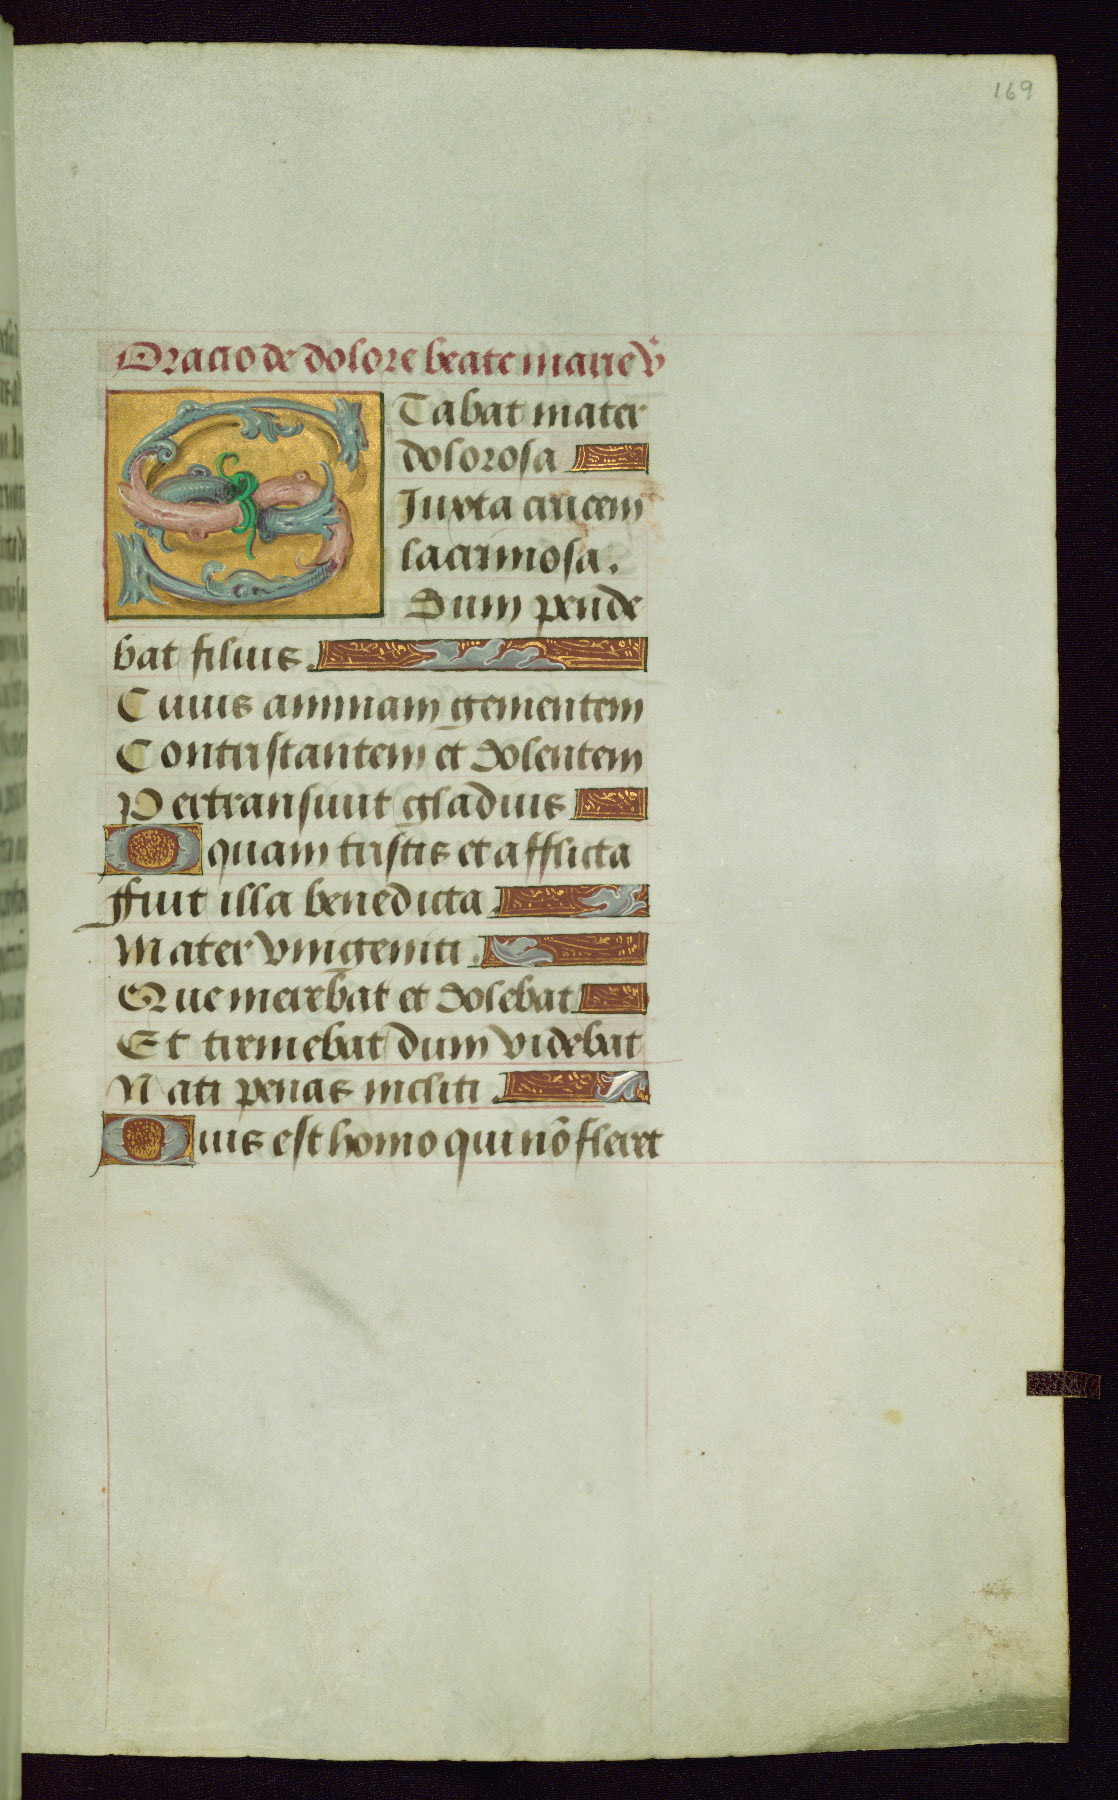 169
Oracio de dolore beate marie v̄
STabat mater
dolorosa
Juxta crucem
lacrimosa.
Dum pende
bat filius.
Cuius animam gementem
Contristantem et dolentem
Pertransiuit gladius
O quam tristis et afflicta
ffuit illa benedicta.
Mater vnigeniti.
Que merebat et dolebat
Et tremebat dum videbat
Nati penas incliti.
Quis est homo qui nō fleret